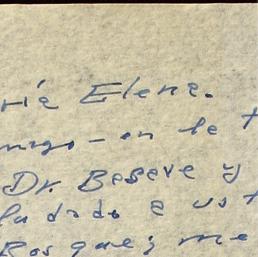 ría Elena.
migo - en le t
Dr. Beseve y
ludado a ust
Bosque; me